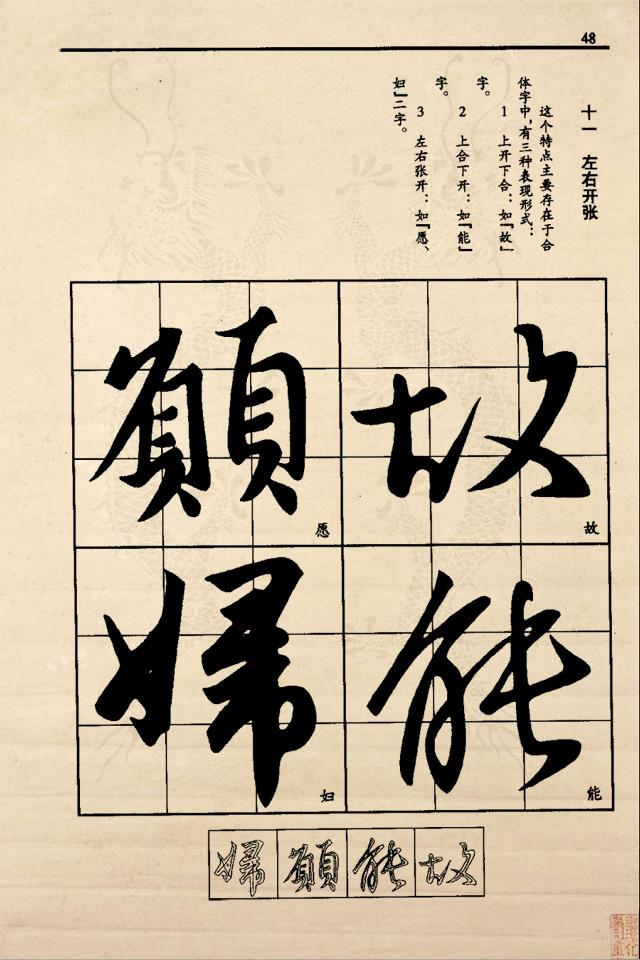 48
十一 左右开张
这个特点主要存在于合
体字中，有三种表现形式：
1 上开下合：如『故』
字。
2 上合下开：如『能』
字。
3 左右张开：如『愿、
妇』二字。
故
故
能
能
願
愿
婦
妇
婦願能故